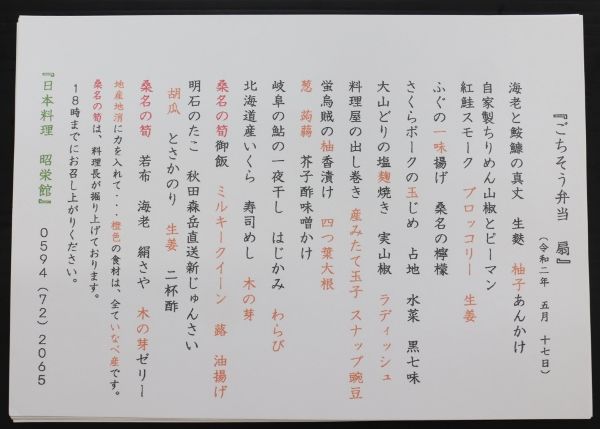 『ごちそう弁当　扇』
（令和二年　五月　十七日）
海老と鮟鱇の真丈　生麩　柚子あんかけ
自家製ちりめん山椒とピーマン
紅鮭スモーク　ブロッコリー　生姜
ふぐの一味揚げ　桑名の檸檬
さくらポークの玉じめ　占地　水菜　黒七味
大山どりの塩麹焼き　実山椒　ラディッシュ
料理屋の出し巻き　産みたて玉子　スナップ豌豆
蛍烏賊の柚香漬け　四つ葉大根
葱　蒟蒻　芥子酢味噌かけ
岐阜の鮎の一夜干し　はじかみ　わらび
北海道産いくら　寿司めし　木の芽
桑名の筍御飯　ミルキークイーン　蕗　油揚げ
明石のたこ　秋田森岳直送新じゅんさい
胡瓜　とさかのり　生姜　二杯酢
桑名の筍　若布　海老　絹さや　木の芽ゼリー
地産地消に力を入れて・・・橙色の食材は、全ていなべ産です。
桑名の筍は、料理長が掘り上げております。
18時までにお召し上がりください。
『日本料理　昭栄館』　0594（72）2065